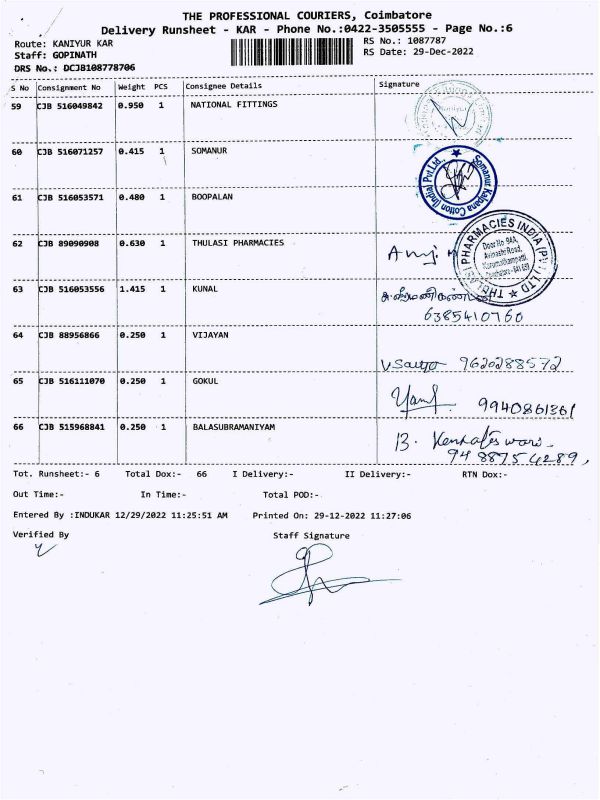 THE PROFESSIONAL COURIERS, Coimbatore
Delivery Runsheet - KAR - Phone No.:0422-3505555 - Page No.:6
Route: KANIYUR KAR RS No.: 1087787
Staff: GOPINATH RS Date: 29-Dec-2022
DRS No.: DCJB108778706
S No Consignment No Weight PCS Consignee Details Signature
59 CJB 516049842 0.950 1 NATIONAL FITTINGS
60 CJB 516071257 0.415 1 SOMANUR
Somanur Kalpana Cotton (India) Pvt.Ltd.,
61 CJB 516053571 0.480 1 BOOPALAN
62 CJB 89090908 0.630 1 THULASI PHARMACIES
THULASI PHARMACIES INDIA (P) LTD
Door No. 9AA,
Avinashi Road,
Karumathampatti,
Coimbatore - 641 659
63 CJB 516053556 1.415 1 KUNAL
6385410760
64 CJB 88956866 0.250 1 VIJAYAN
9620288572
65 CJB 516111070 0.250 1 GOKUL
9940861361
66 CJB 515968841 0.250 1 BALASUBRAMANIYAM
B. Venkateswari
9488754289,
Tot. Runsheet:- 6 Total Dox:- 66 I Delivery:- II Delivery:- RTN Dox:-
Out Time:- In Time:- Total POD:-
Entered By :INDUKAR 12/29/2022 11:25:51 AM Printed On: 29-12-2022 11:27:06
Verified By Staff Signature